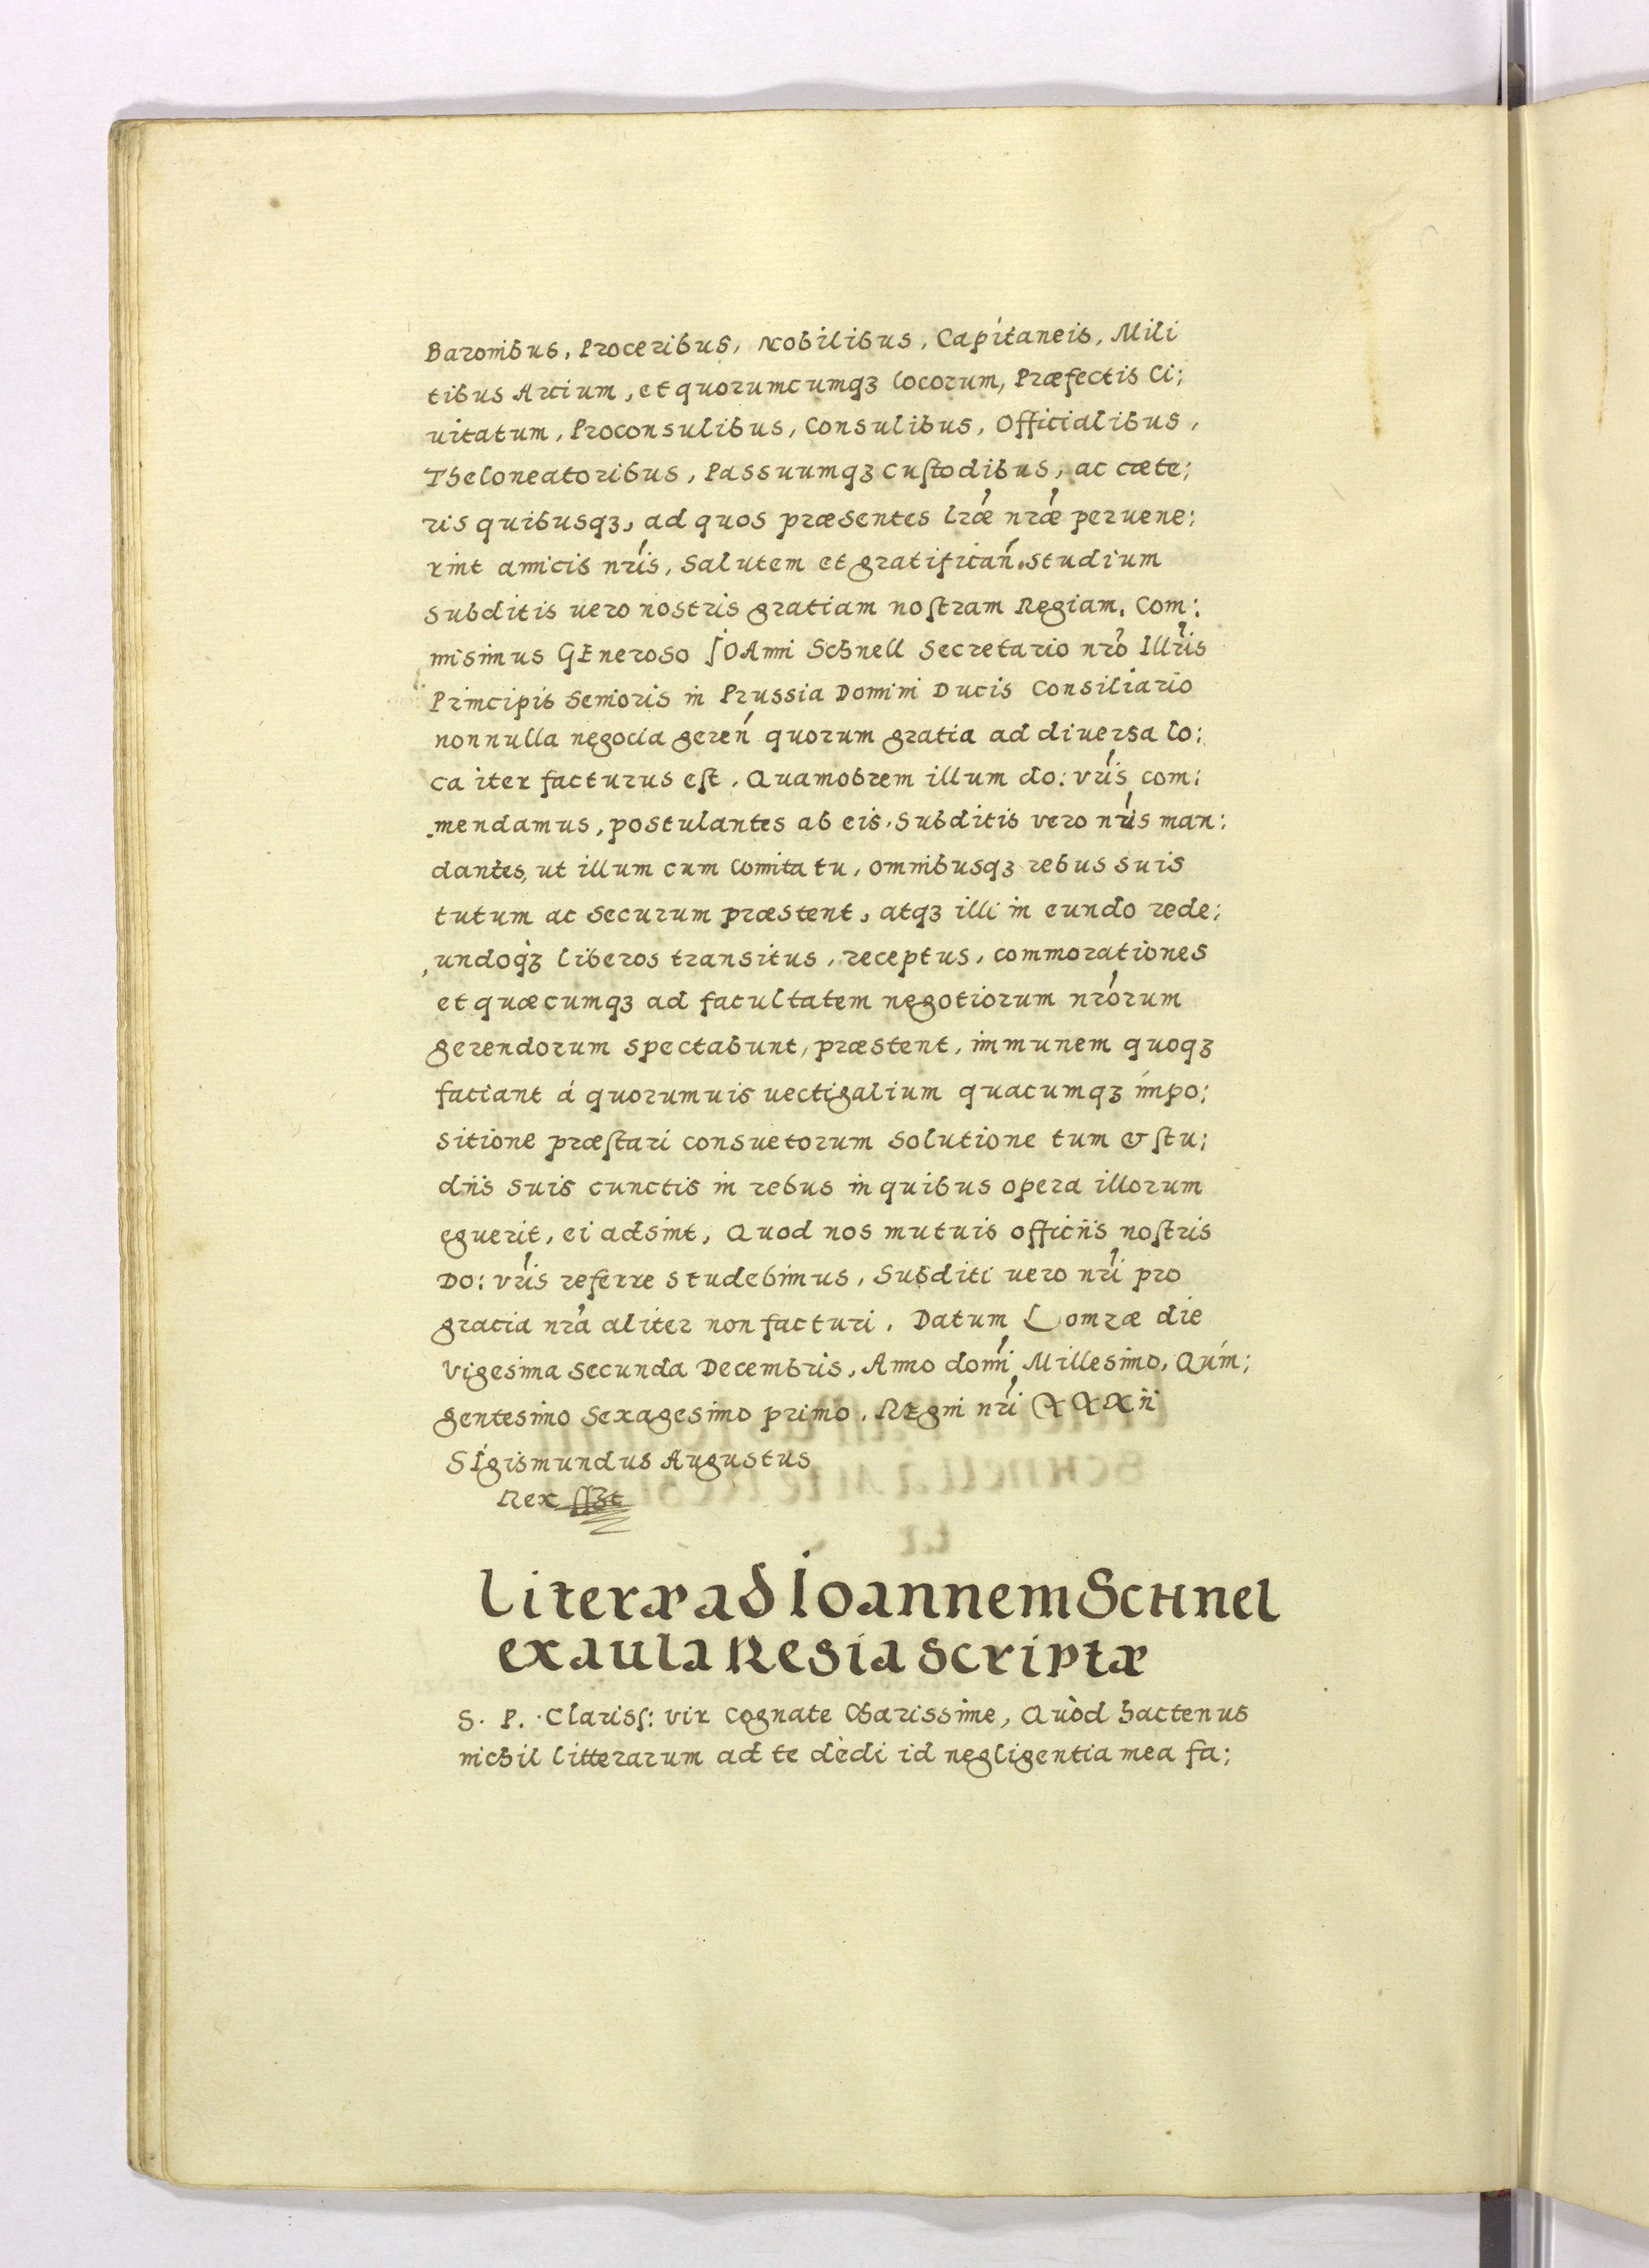 Baronibus, Proceribus, Nobilibus, Capitaneis, Mili
tibus Arcium, et quorumcumqꝫ locorum, Præfectis Ci;
uitatum, Proconsulibus, Consulibus, Officialibus,
Theloneatoribus, Passuumqꝫ cuſtodibus, ac cæte;
ris quibusqꝫ, ad quos præsentes lræ nræ peruene;
rint amicis nris, Salutem et gratifican. studium
subditis uero nostris gratiam noſtram Regiam. Com:
misimus GEneroso JOAnni Schnell Secretario nro Illris
Principis Senioris in Prussia Domini Ducis Consiliario
nonnulla negocia geren quorum gratia ad diuersa lo;
ca iter facturus eſt. Quamobrem illum do: vris com;
mendamus, postulantes ab eis. Subditis vero nris man;
dantes, ut illum cum Comitatu, omnibusqꝫ rebus suis
tutum ac securum præstent, atqꝫ illi in eundo rede;
undoqꝫ liberos transitus, receptus, commorationes
et quæcumqꝫ ad facultatem negotiorum nrorum
gerendorum spectabunt, præstent, immunem quoqꝫ
faciant á quorumuis uectigalium quacumqꝫ impo;
sitione præſtari consuetorum solutione tum & ſtu;
diis suis cunctis in rebus in quibus opera illorum
eguerit, ei adsint, Quod nos mutuis officiis noſtris
DO: vris referre studebimus, Subditi uero nri pro
gracia nra aliter non facturi. Datum Lomzæ die
Vigesima secunda Decembris, Anno domi Millesimo, Quin;
gentesimo Sexagesimo primo. REgni nri XXXii
SIgismundus Augustus
Rex
Literæ ad Ioannem Schnel
ex aula Regia scriptæ
S. P. Clarisſ: vir Cognate Charissime, Quòd hactenus
nichil litterarum ad te dèdi id negligentia mea fa;